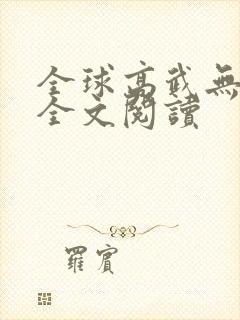 全球高武無
全文閱讀
羅賓